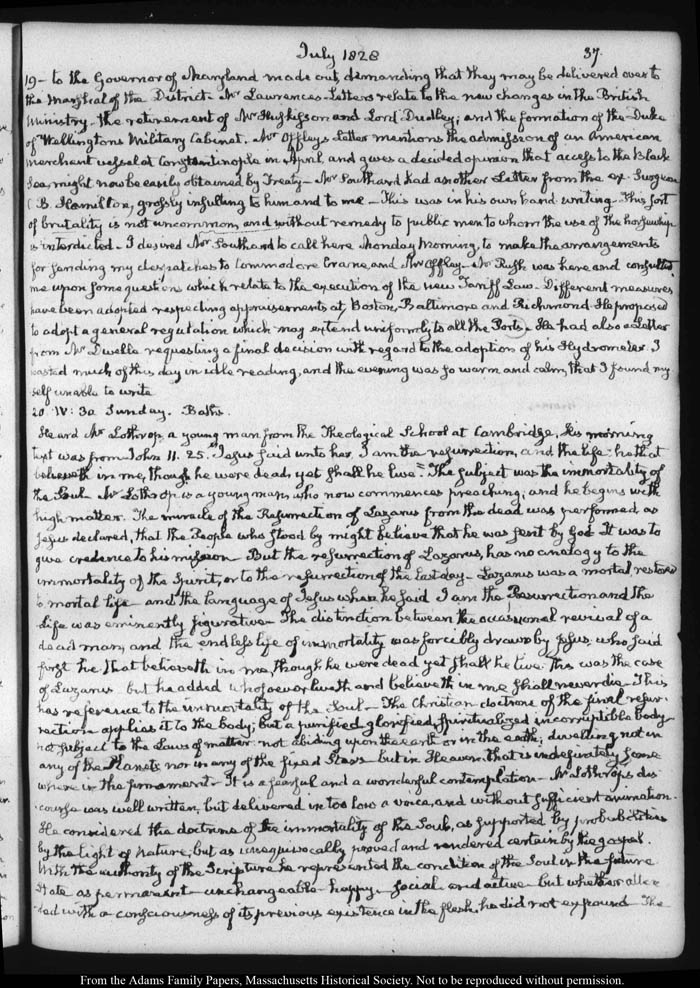 July 1828 37.
19 – to the Governor of Maryland made out, demanding that they may be delivered over to
the Marshal of the District – Mr Lawrences Letters relate to the new changes in the British
Ministry – the retirement of Mr Huskisson and Lord Dudley; and the formation of the Duke
of Wellington's Military Cabinet. Mr Offleys Letter mentions the admission of an American
merchant vessel at Constantinople in April, and gives a decided opinion that access to the Black
Sea, might now be easily obtained by Treaty – Mr Southard had another Letter from the ex-Surgeon
B. Hamilton, grossly insulting to him and to me – This was in his own hand-writing – This sort
of brutality is not uncommon, and without remedy to public men to whom the use of the horsewhip
is interdicted – I desired Mr Southard to call here Monday Morning, to make the arrangements
for sending my despatches to Commodore Crane, and Mr Offley – Mr Rush was here and consulted
me upon some questions which relate to the execution of the new Tariff Law – Different measures
have been adopted respecting appraisements at, Boston, Baltimore and Richmond – He proposed
to adopt a general regulation which may extend uniformly to all the Ports – He had also a Letter
from Mr Dwelle requesting a final decision with regard to the adoption of his Hydrometer. I
wasted much of this day in idle reading, and the evening was so warm and calm, that I found my
self unable to write
20. IV: 30 Sunday. Bath.
Heard Mr Lothrop, a young man from the Theological School at Cambridge, his morning
text was from John 11. 25. Jesus said unto her, I am the resurrection, and the life: he that
believeth in me, though he were dead, yet shall he live" – The subject was the immortality of
the Soul – Mr Lothrop is a young man, who now commences preaching; and he begins with
high matter. The miracle of the Resurrection of Lazarus from the dead was performed, as
Jesus declared, that the People who stood by might believe that he was sent by God – It was to
give credence to his mission – But the resurrection of Lazarus, has no analogy to the
immortality of the Spirit, or to the resurrection of the last day – Lazarus was a mortal, restored
to mortal life – and the language of Jesus when he said I am the Resurrection and the
Life was eminently figurative – The distinction between the occasional revival of a
dead man, and the endless life of immortality was forcibly drawn by Jesus, who said
first he that believeth in me, though he were dead yet shall he live. This was the case
of Lazarus – but he added whosoever liveth and believeth in me shall never die – This
has reference to the immortality of the Soul – The Christian doctrine of the final resur-
rection applies it to the body; but a purified, glorified, spiritualized incorruptible body –
not subject to the Laws of matter – not abiding upon the earth or in the earth; dwelling not in
any of the Planets nor in any of the fixed Stars – but in Heaven, that is indefinitely some
where in the firmament – It is a fearful and a wonderful contemplation – Mr Lothrop's dis-
course was well written, but delivered in too low a voice, and without sufficient animation.
He considered the doctrine of the immortality of the Soul, as supported by probabilities
by the light of Nature; but as unequivocally proved and rendered certain by the gospel.
With the authority of the Scripture he represented the condition of the Soul in the future
State as permanent – unchangeable – happy – social and active – but whether atten-
ded with a consciousness of its previous existence in the flesh, he did not expound – The
From the Adams Family Papers, Massachusetts Historical Society. Not to be reproduced without permission.